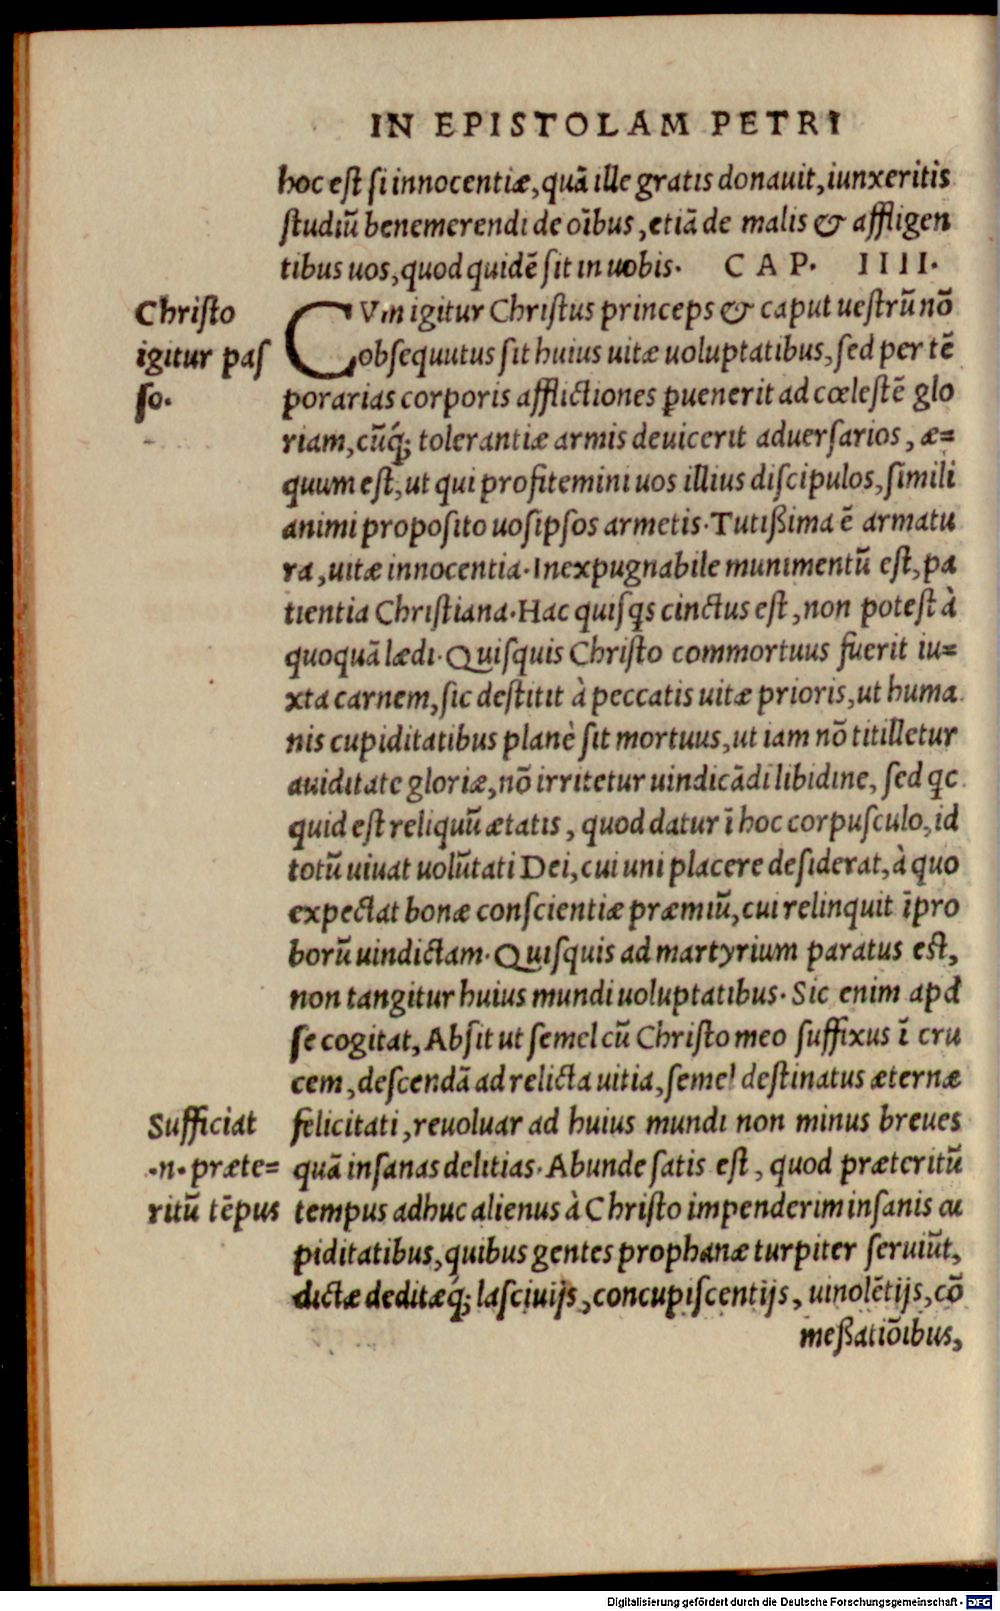 IN EPISTOLAM PETRI
hoc est si innocentiæ, quā ille gratis donauit, iunxeritis
studiū benemerendi de oībus, etiā de malis & affligen
tibus uos, quod quidē sit in uobis. CAP. IIII.
Christo
igitur pas
so.
CVm igitur Christus princeps & caput uestrū nō
obsequutus sit huius uitæ uoluptatibus, sed per tē
porarias corporis afflictiones ꝑuenerit ad cœlestē glo
riam, cūq́; tolerantiæ armis deuicerit aduersarios, æ=
quum est, ut qui profitemini uos illius discipulos, simili
animi proposito uosipsos armetis. Tutißima ē armatu
ra, uitæ innocentia. Inexpugnabile munimentū est, pa
tientia Christiana. Hac quisq̃s cinctus est, non potest à
quoquā lædi. Quisquis Christo commortuus fuerit iu=
xta carnem, sic destitit à peccatis uitæ prioris, ut huma
nis cupiditatibus planè sit mortuus, ut iam nō titilletur
auiditate gloriæ, nō irritetur uindicādi libidine, sed qc
quid est reliquū ætatis, quod datur ī hoc corpusculo, id
totū uiuat uolūtati Dei, cui uni placere desiderat, à quo
expectat bonæ conscientiæ præmiū, cui relinquit īpro
borū uindictam. Quisquis ad martyrium paratus est,
non tangitur huius mundi uoluptatibus. Sic enim apd
se cogitat, Absit ut semel cū Christo meo suffixus ī cru
cem, descendā ad relicta uitia, semel destinatus æternæ
Sufficiat
.n. præte=
ritū tēpus
felicitati, reuoluar ad huius mundi non minus breues
quā insanas delitias. Abunde satis est, quod præteritū
tempus adhuc alienus à Christo impenderim insanis cu
piditatibus, quibus gentes prophanæ turpiter seruiūt,
dictæ deditæq́; lasciuijs, concupiscentijs, uinolētijs, cō
meßatiōibus,
Digitalisierung gefördert durch die Deutsche Forschungsgemeinschaft - DFG